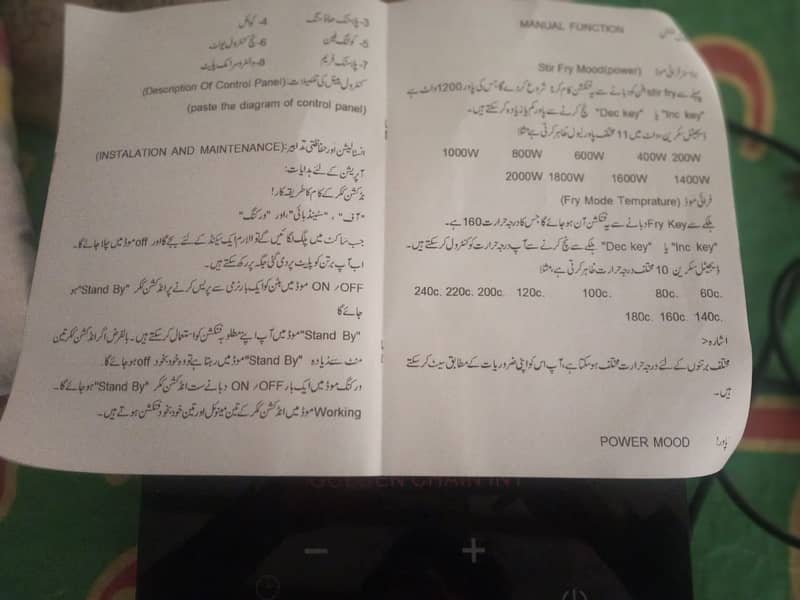 3- پلاسٹک ہاؤسنگ 4- کوائل
5- کولنگ فین 6- ٹچ کنٹرول یونٹ
7- پلاسٹک فریم 8- مائیکرو کرسٹل پلیٹ
کنٹرول پینل کی تفصیلات: (Description Of Control Panel)
(paste the diagram of control panel)
انسٹالیشن اور حفاظتی تدابیر: (INSTALATION AND MAINTENANCE)
آپریشن کے لئے ہدایات:
انڈکشن ککر کے کام کا طریقہ کار!
"آف" ، "سٹینڈ بائی" اور "ورکنگ"
جب ساکٹ میں پلگ لگائیں گے تو الارم ایک سیکنڈ کے لئے بجے گا اور off موڈ میں چلا جائے گا۔
اب آپ برتن کو پلیٹ پر دی گئی جگہ پر رکھ سکتے ہیں۔
ON /OFF موڈ میں بٹن کو ایک بار نرمی سے پریس کرنے پر انڈکشن ککر "Stand By" ہو
جائے گا
"Stand By" موڈ میں آپ اپنے مطلوبہ فنکشن کو استعمال کر سکتے ہیں۔ بالفرض اگر انڈکشن ککر تین
منٹ سے زیادہ "Stand By" موڈ میں رہتا ہے تو وہ خود بخود off ہو جائے گا۔
ورکنگ موڈ میں ایک بار ON /OFF دبانے سے انڈکشن ککر "Stand By" ہو جائے گا۔
Working موڈ میں انڈکشن ککر کے تین مینوئل اور تین خود بخود فنکشن ہوتے ہیں۔
MANUAL FUNCTION
Stir Fry Mood(power)
پہلے سے stir fry بٹن کو دبانے سے یہ فنکشن کام کرنا شروع کر دے گا، جس کی پاور 1200 واٹ ہے
"Inc key" یا "Dec key" ٹچ کرنے سے پاور کم یا زیادہ کر سکتے ہیں۔
ڈیجیٹل سکرین سولٹ میں 11 مختلف پاور لیول ظاہر کرتی ہے، مثلا
1000W 800W 600W 400W 200W
2000W 1800W 1600W 1400W
فرائی موڈ (Fry Mode Temprature)
ہلکے سے Fry Key دبانے سے یہ فنکشن آن ہو جائے گا جس کا درجہ حرارت 160 ہے۔
"Inc key" یا "Dec key" ہلکے سے ٹچ کرنے سے آپ درجہ حرارت کو کنٹرول کر سکتے ہیں۔
ڈیجیٹل سکرین 10 مختلف درجہ حرارت ظاہر کرتی ہے، مثلا
240c. 220c. 200c. 120c. 100c. 80c. 60c.
180c. 160c. 140c.
اشارہ >
مختلف برتنوں کے لئے درجہ حرارت مختلف ہو سکتا ہے، آپ اس کو اپنی ضروریات کے مطابق سیٹ کر سکتے
ہیں۔
پاور! POWER MOOD
GOLDEN CHAIN INT
− +